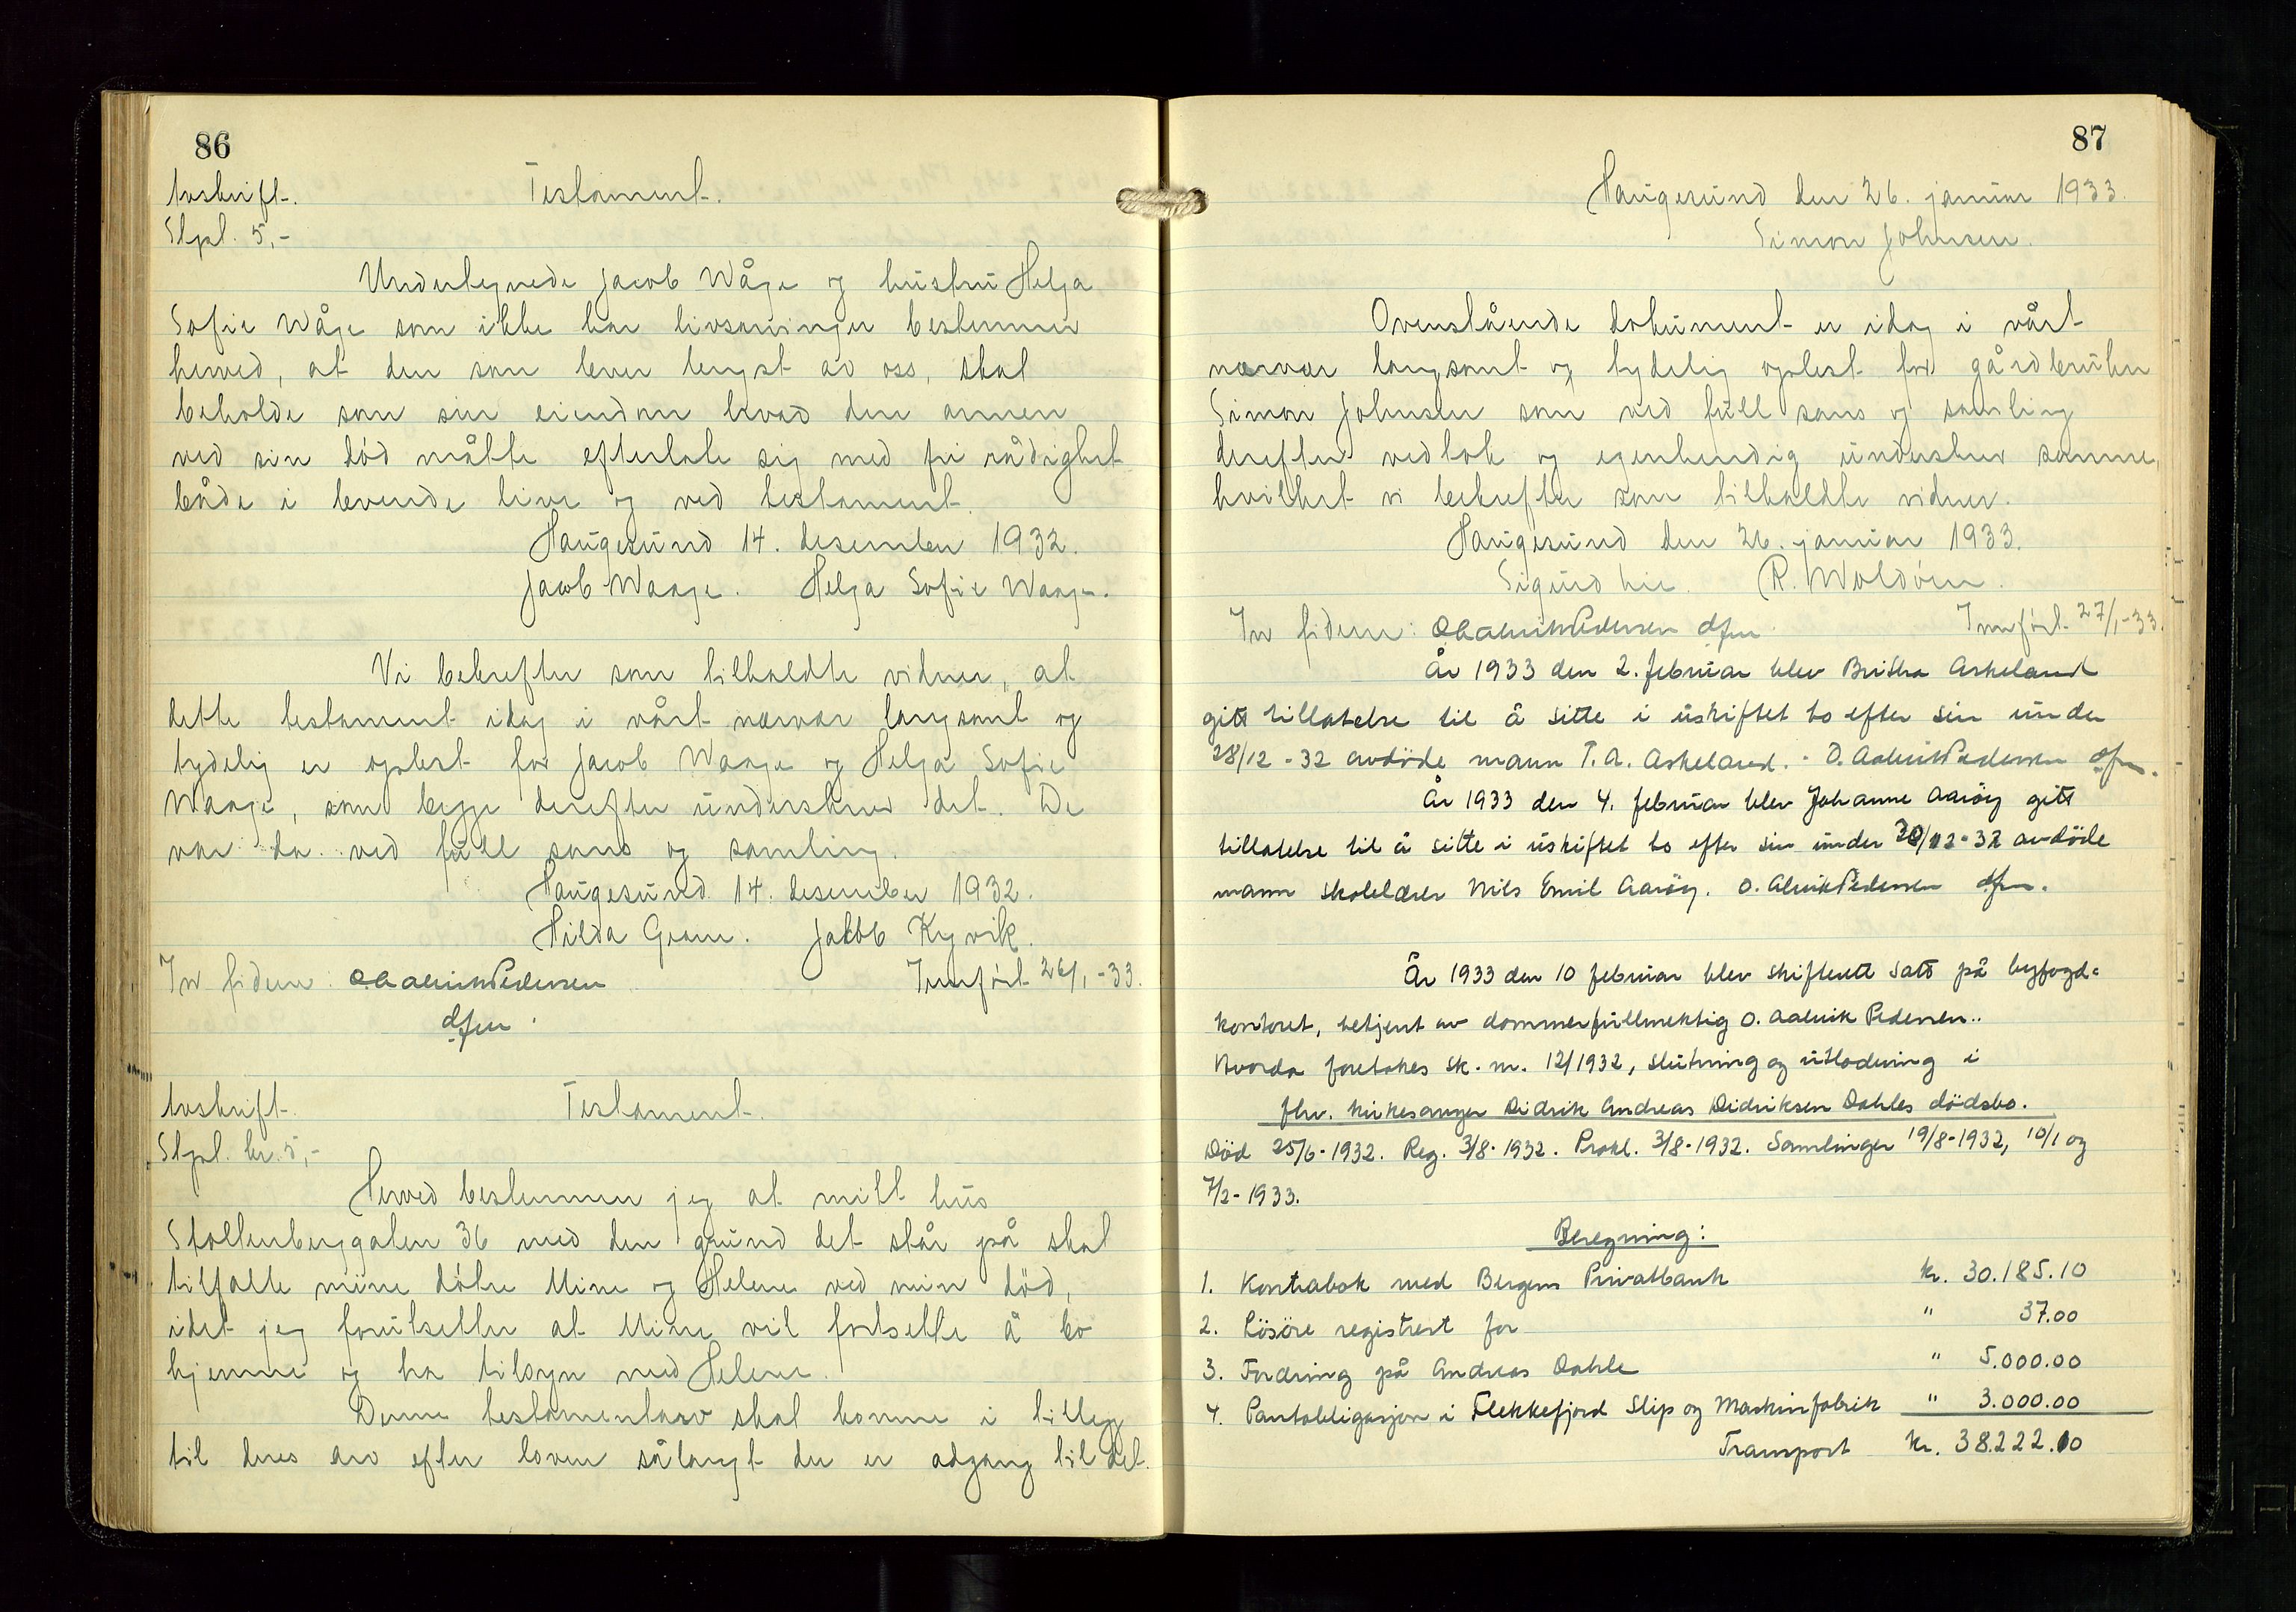 86
Avskrift.
Testament.
Stpl. 5,-
Undertegnede Jacob Wåge og hustru Helga
Sofie Wåge som ikke har livsarvinger bestemmer
herved, at den som lever lengst av oss, skal
beholde som sin eiendom hvad den annen
ved sin død måtte efterlate sig med fri rådighet
både i levende live og ved testament.
Haugesund 14. desember 1932.
Jacob Waage. Helga Sofie Waage.
Vi bekrefter som tilkaldte vidner, at
dette testament idag i vårt nærvær langsomt og
tydelig er oplest for Jacob Waage og Helga Sofie
Waage, som begge derefter underskrev det. De
var da ved full sans og samling.
Haugesund 14. desember 1932.
Hilda Grann. Jakob Kyvik.
In fidem: O. Aalvik Pedersen
Innført 26/1-33.
dfm.
Avskrift.
Testament.
Stpl. kr. 5,-
Herved bestemmer jeg at mitt hus
Stoltenberggaten 36 med den grund det står på skal
tilfalle mine døtre Mine og Helene ved min død,
idet jeg forutsetter at Mine vil fortsette å bo
hjemme og ha tilsyn med Helene.
Denne testamentarv skal komme i tillegg
til deres arv efter loven sålangt der er adgang til det.
87
Haugesund den 26. januar 1933.
Simon Johnsen.
Ovenstående dokument er idag i vårt
nærvær langsomt og tydelig oplest for gårdbruker
Simon Johnsen som ved full sans og samling
derefter vedtok og egenhendig underskrev samme,
hvilket vi bekrefter som tilkaldte vidner.
Haugesund den 26. januar 1933.
Sigurd Lie. R. Woldøen.
In fidem: O. Aalvik Pedersen dfm.
Innført 27/1-33.
År 1933 den 2. februar blev Britha Askeland
gitt tillatelse til å sitte i uskiftet bo efter sin under
28/12-32 avdøde mann T. A. Askeland. - O. Aalvik Pedersen dfm.
År 1933 den 4. februar blev Johanne Aarøy gitt
tillatelse til å sitte i uskiftet bo efter sin under 30/12-32 avdöde
mann skolelærer Nils Emil Aarøy. O. Alvik Pedersen dfm.
År 1933 den 10 februar blev skifterett satt på byfogd=
kontoret, betjent av dommerfullmektig O. Aalvik Pedersen..
Hvorda foretokes sk. nr. 12/1932, slutning og utlodning i
fhv. kirkesanger Didrik Andreas Didriksen Dahles dödsbo.
Död 25/6-1932. Reg. 3/8-1932. Prokl. 3/8-1932. Samlinger 19/8-1932, 10/1 og
7/2-1933.
Beregning:
1. Kontrabok med Bergens Privatbank kr. 30.185.10
2. Lösöre registrert for " 37.00
3. Fordring på Andreas Dahle " 5.000.00
4. Pantobligasjon i Flekkefjord Slip og Maskinfabrik " 3.000.00
Transport kr. 38.222.10